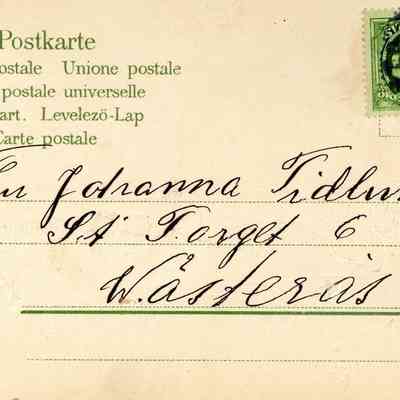 Postkarte
ostale Unione postale
postale universelle
art. Levelező-Lap
Carte postale
Johanna
St Torget 6
Wästerås